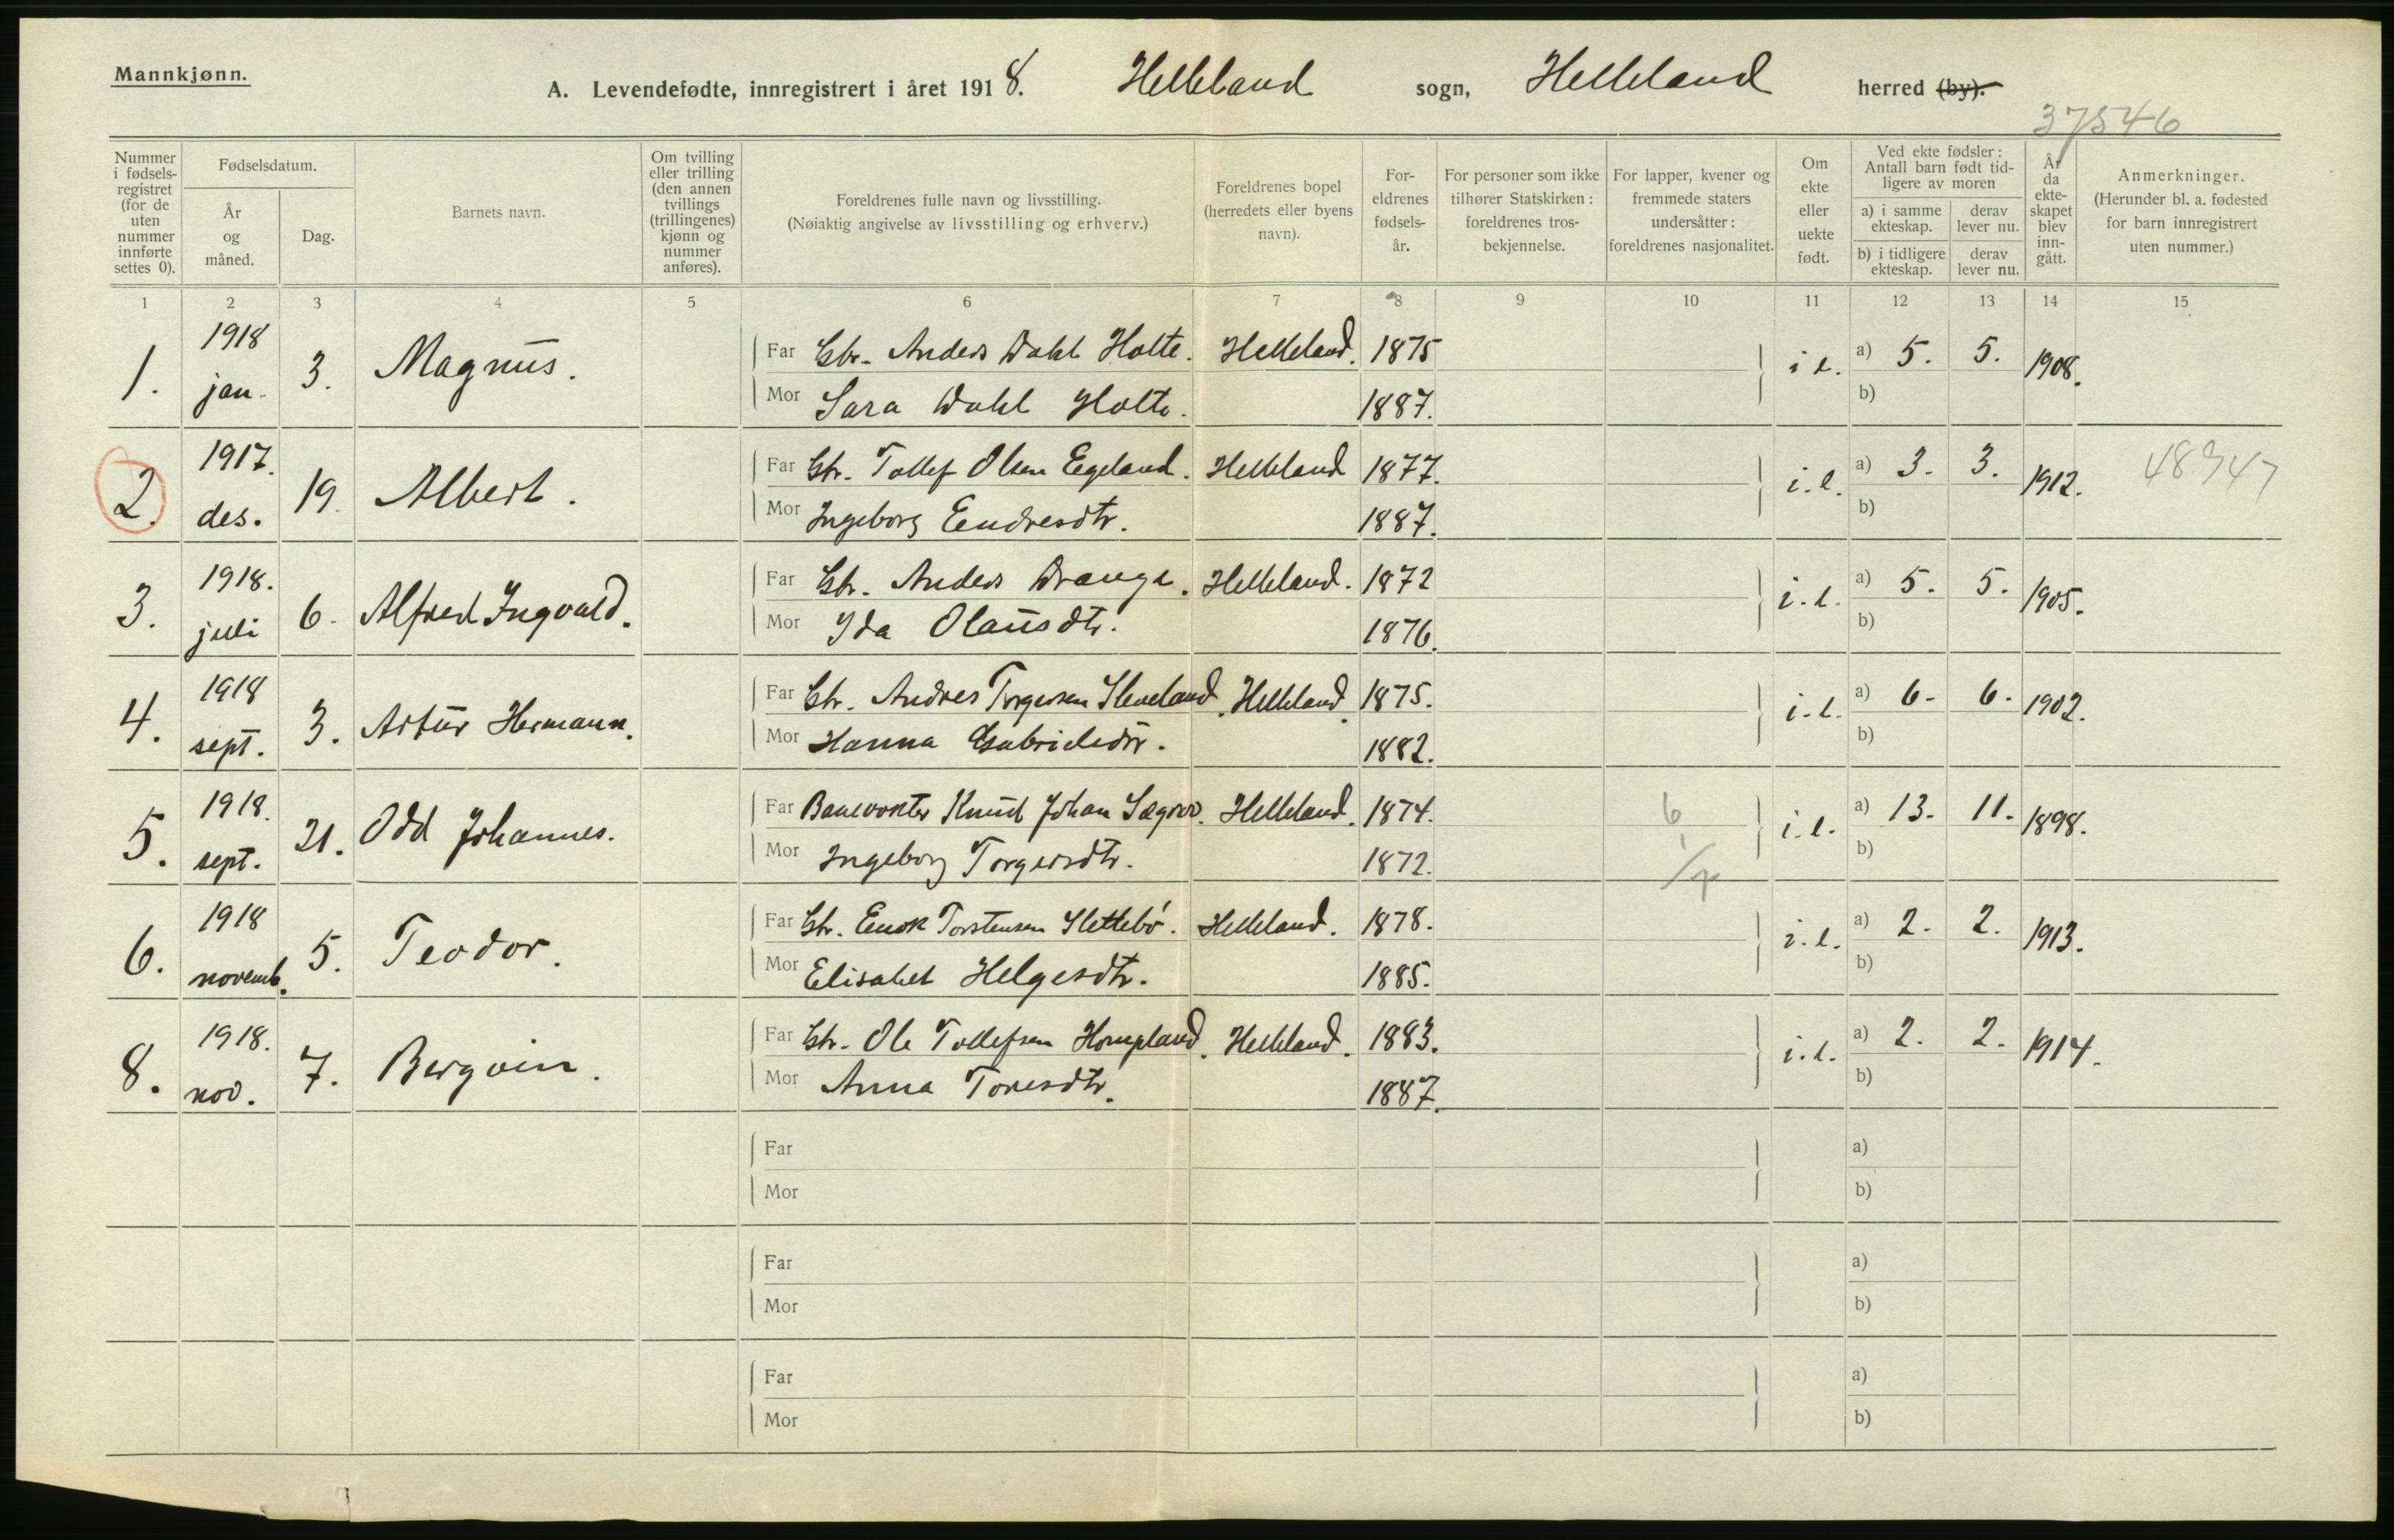 Mannkjønn.
A. Levendefødte, innregistrert i året 1918. Helleland sogn, Helleland herred (by).
37546
Nummer i fødselsregistret (for de uten nummer innførte settes 0).
Fødselsdatum.
År og måned.
Dag.
Barnets navn.
Om tvilling eller trilling (den annen tvillings (trillingenes) kjønn og nummer anføres).
Foreldrenes fulle navn og livsstilling.
(Nøiaktig angivelse av livsstilling og erhverv.)
Foreldrenes bopel (herredets eller byens navn).
Foreldrenes fødselsår.
For personer som ikke tilhører Statskirken: foreldrenes trosbekjennelse.
For lapper, kvener og fremmede staters undersåtter: foreldrenes nasjonalitet.
Om ekte eller uekte født.
Ved ekte fødsler: Antall barn født tidligere av moren
a) i samme ekteskap. derav lever nu.
b) i tidligere ekteskap. derav lever nu.
År da ekteskapet blev inngått.
Anmerkninger.
(Herunder bl. a. fødested for barn innregistrert uten nummer.)
1 2 3 4 5 6 7 8 9 10 11 12 13 14 15
1. 1918 jan. 3. Magnus. Far Gbr. Anders Dahl Holte. Helleland. 1875 i e. a) 5. 5. 1908.
Mor Sara Dahl Holte. 1887. b)
2. 1917. des. 19. Albert. Far Gbr. Tollef Olsen Eegeland. Helleland 1877. i. e. a) 3. 3. 1912. 48947
Mor Ingeborg Eendresdtr. 1887. b)
3. 1918. juli 6. Alfred Ingvald. Far Gbr. Anders Drange. Helleland. 1872 i. e. a) 5. 5. 1905.
Mor Ida Olausdtr. 1876. b)
4. 1918 sept. 3. Artur Hermann. Far Gbr. Andres Torgersen Sleveland. Helleland. 1875. i. e. a) 6. 6. 1902.
Mor Hanna Gabrielsdtr. 1882. b)
5. 1918. sept. 21. Odd Johannes. Far Banevokter Knud Johan Sægrov. Helleland. 1874. 6 i. e. a) 13. 11. 1898.
Mor Ingeborg Torgersdtr. 1872. b)
6. 1918 novemb. 5. Teodor. Far Gbr. Enok Torstensen Slettebø. Helleland. 1878. i. e. a) 2. 2. 1913.
Mor Elisabet Helgesdtr. 1885. b)
8. 1918. nov. 7. Bergvin. Far Gbr. Ole Tollefsen Hompland. Helleland. 1883. i. e. a) 2. 2. 1914.
Mor Anna Toresdtr. 1887. b)
Far a)
Mor b)
Far a)
Mor b)
Far a)
Mor b)